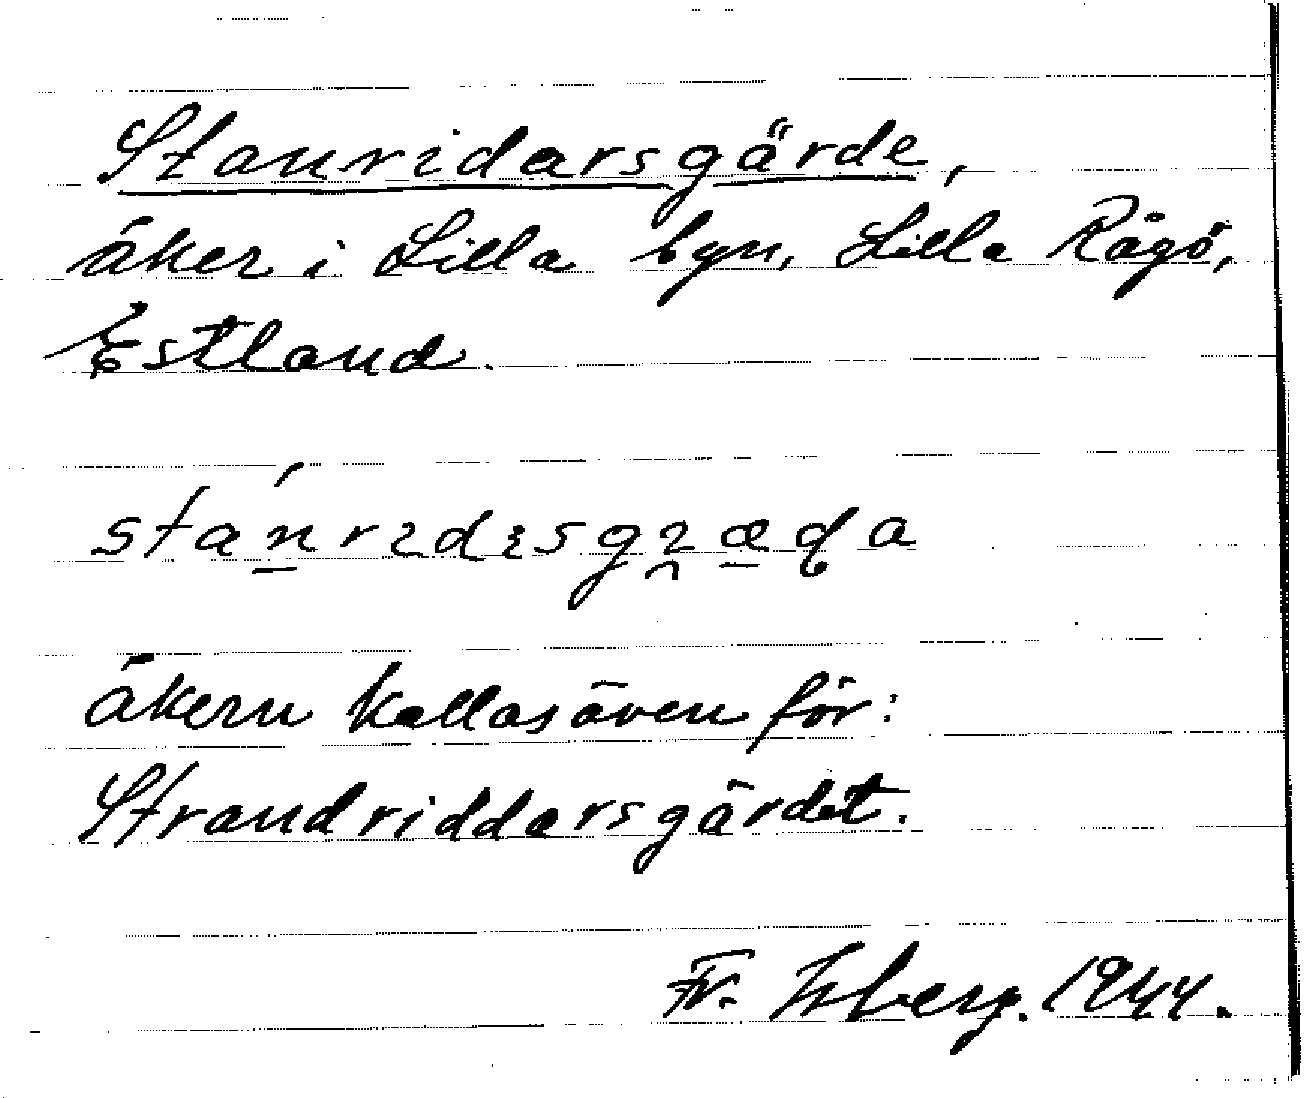 Stanridarsgärde,
åker i Lilla byn, Lilla Rågö,
Estland.
åkern kallas även för:
Strandriddarsgärdet.
Fr. Isberg. 1944.